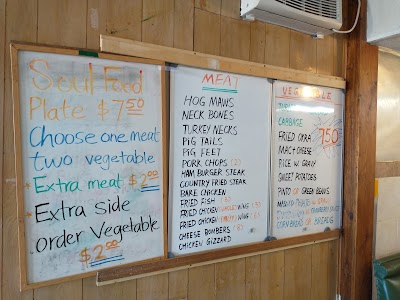 Soul Food
Plate $7.50
Choose one meat
two vegetable
Extra meat $2.00
Extra side
order Vegetable
$2.00
MEAT
HOG MAWS
NECK BONES
TURKEY NECKS
PIG TAILS
PIG FEET
PORK CHOPS (2)
HAM BURGER STEAK
COUNTRY FRIED STEAK
BAKE CHICKEN
FRIED FISH (3)
FRIED CHICKEN WING (3)
FRIED CHICKEN WING (3)
CHEESE BOMBERS
CHICKEN GIZZARD
VEGETABLE
CABBAGE
FRIED OKRA
MAC + CHEESE
RICE W. GRAVY
SWEET POTATOES
PINTO OR GREEN BEANS
CORN BREAD OR
7.50